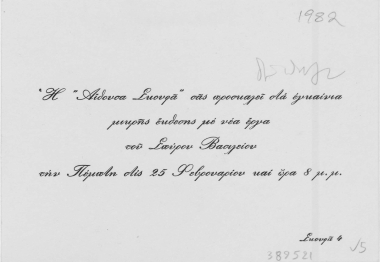 1982
Ἡ "Αἴθουσα Σκουφᾶ" σᾶς προσκαλεῖ στά ἐγκαίνια
μικρῆς ἔκθεσης μέ νέα ἔργα
τοῦ Σπύρου Βασιλείου
τήν Πέμπτη στίς 25 Φεβρουαρίου καί ὥρα 8 μ.μ.
Σκουφᾶ 4
√5
389521